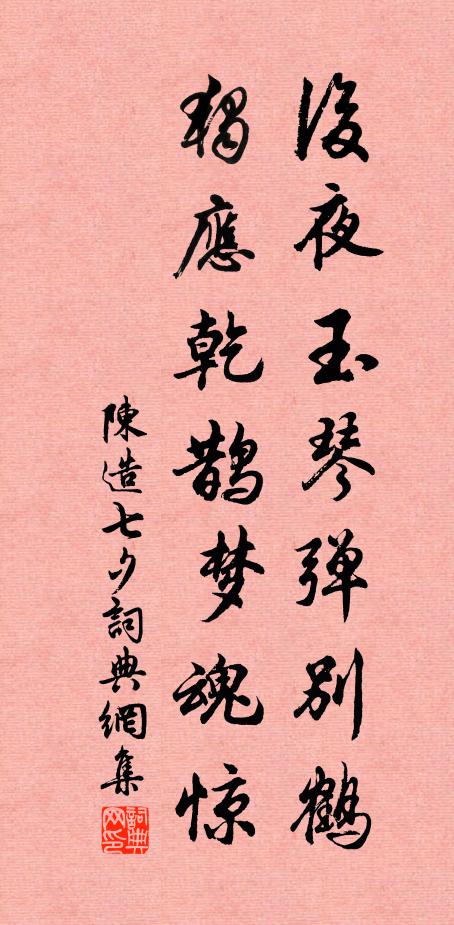 後夜玉琴弹别鶴
獨應乾鵲梦魂惊
陳造七夕詞典網集
詞典网印